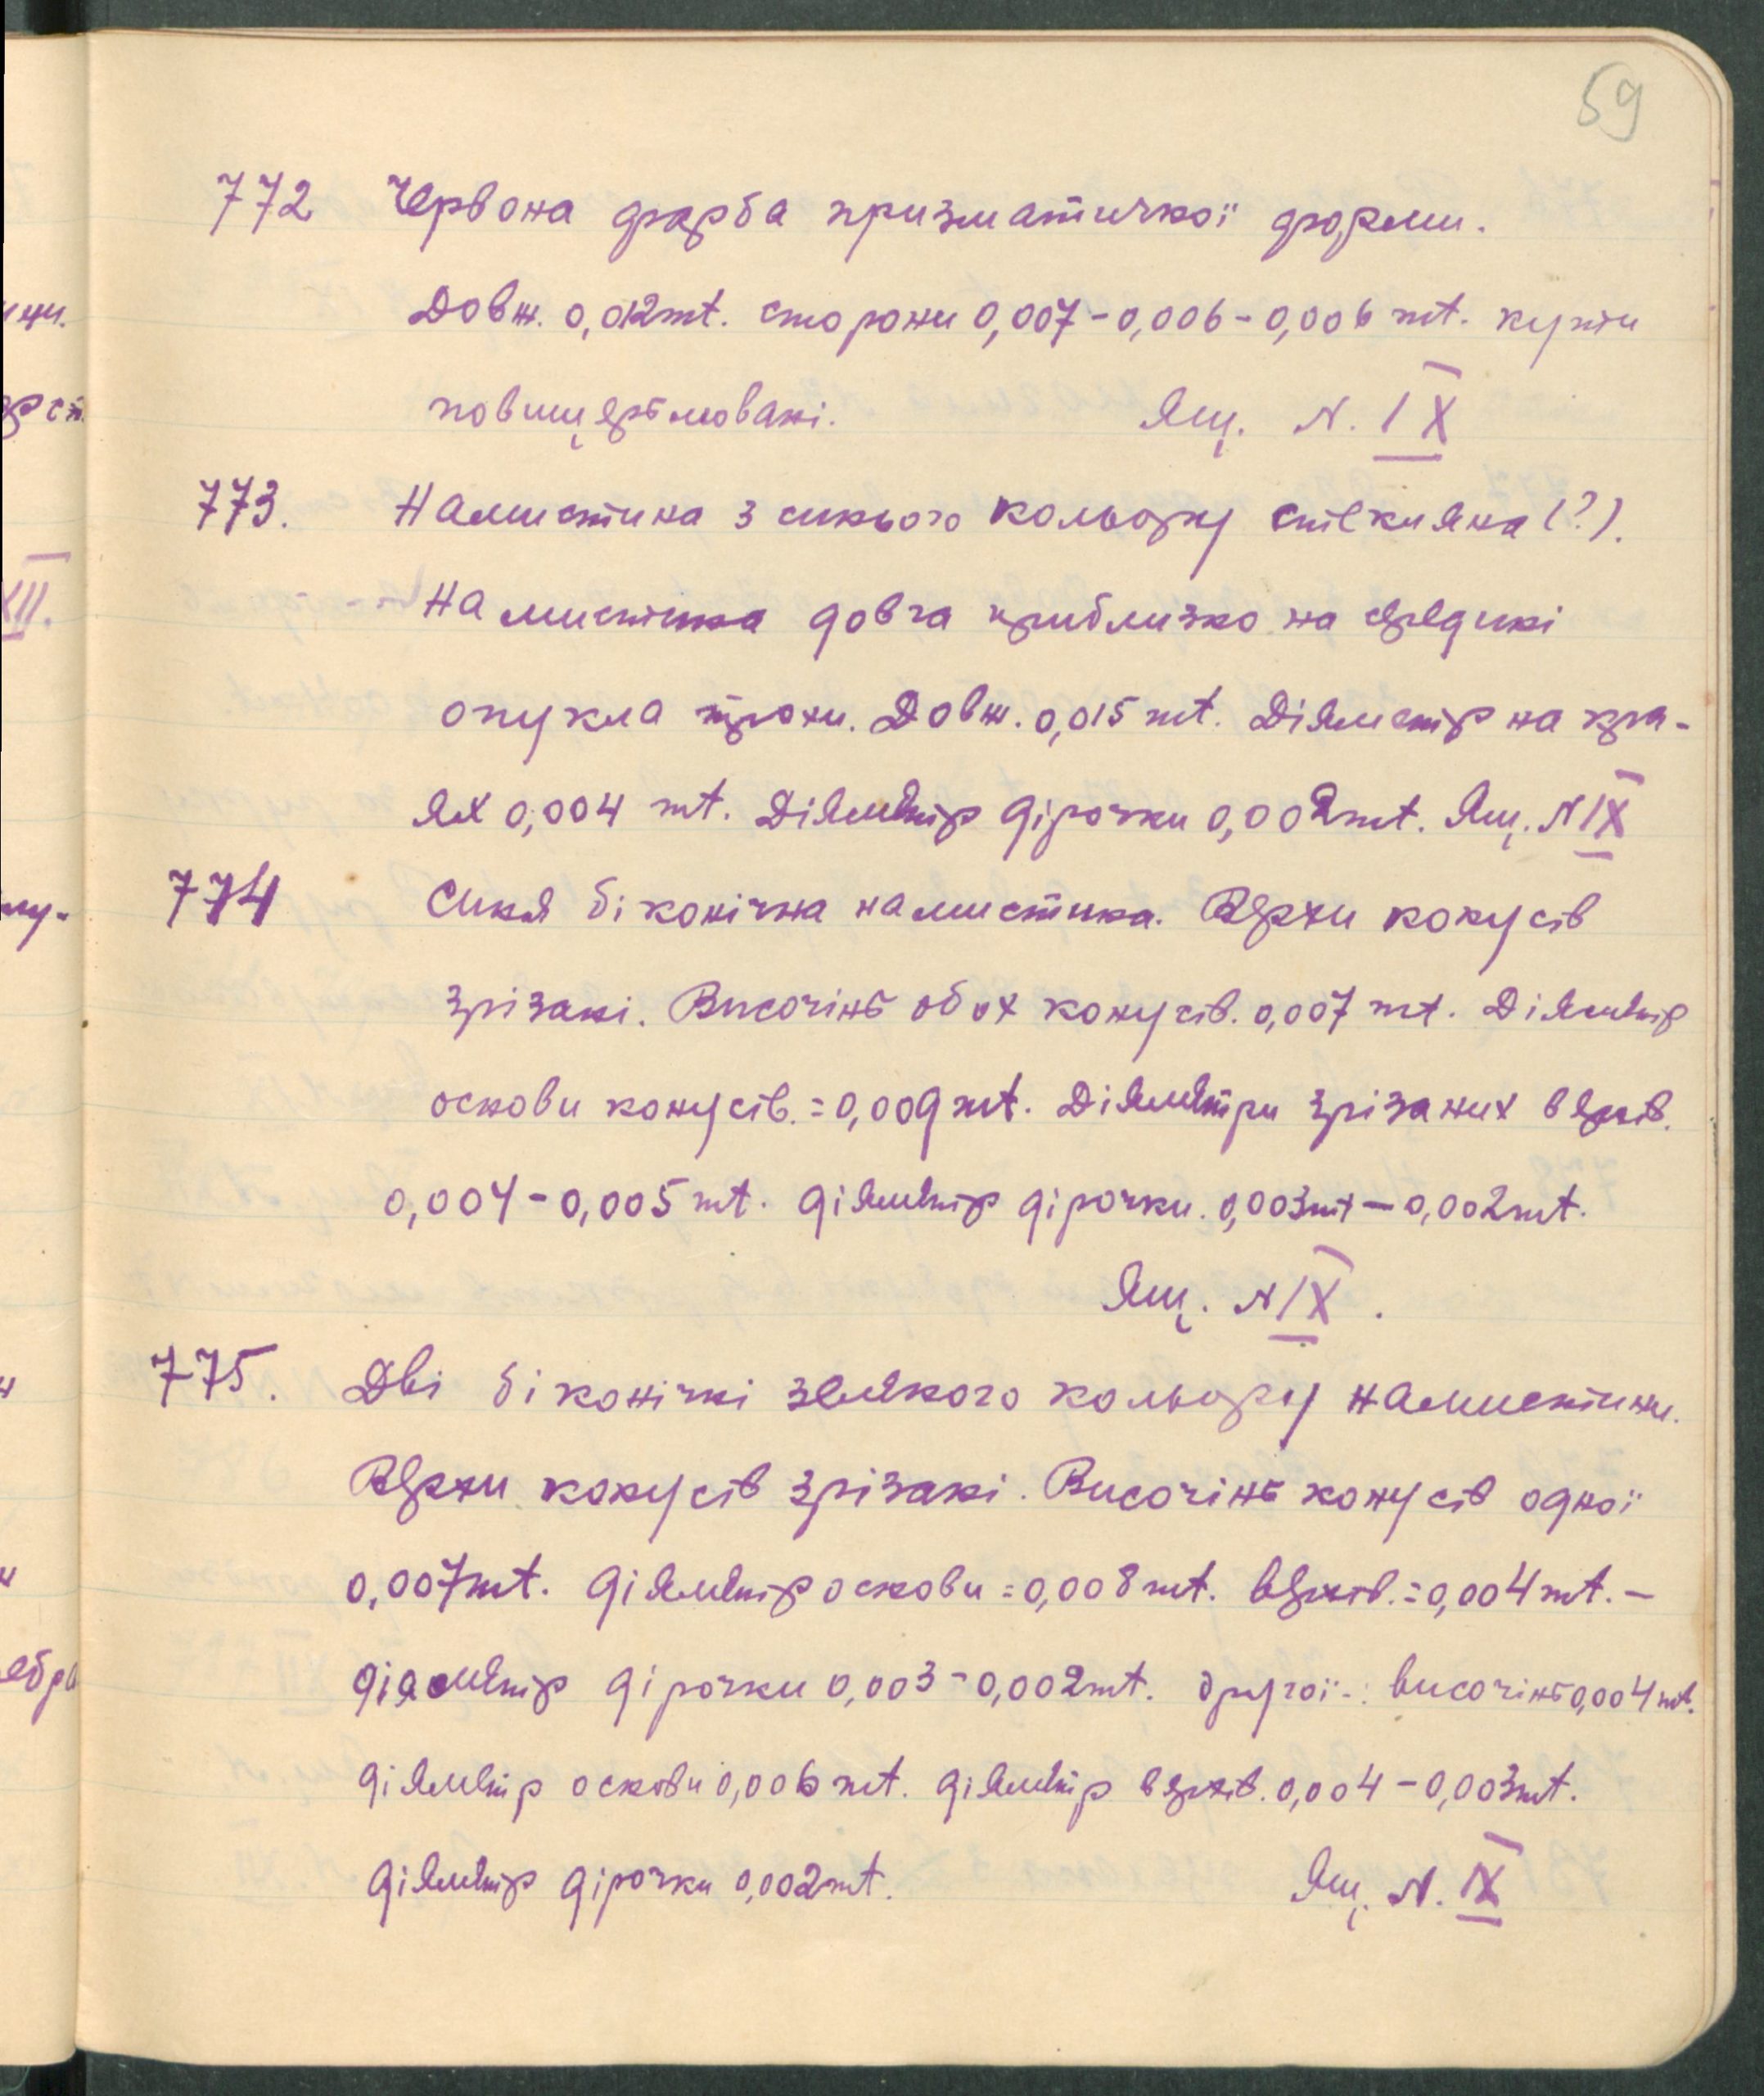 59
772 Червона фарба призматичної форми.
Довж. 0,012mt. сторони 0,007-0,006-0,006 mt. кути
повищерблювані. Ящ. N. IX
773. Намистина з синього кольору стекляна (?).
Намистина довга приблизко на середині
опукла трохи. Довж. 0,015 mt. Діяметр на кра-
ях 0,004 mt. Діяметр дірочки 0,002mt. Ящ. N IX
774 Синя біконічна намистина. Верхи конусів
зрізані. Височінь обох конусів. 0,007 mt. Діяметр
основи конусів. = 0,009 mt. Діяметри зрізаних верхів.
0,004-0,005 mt. діяметр дірочки. 0,003mt — 0,002mt.
Ящ. N IX.
775. Дві біконічні зеленого кольору намистини.
Верхи конусів зрізані. Височінь конусів одної
0,007mt. діяметр основи = 0,008 mt. верхів. = 0,004 mt. —
діяметр дірочки 0,003-0,002mt. другої -: височінь 0,004 mt.
діяметр основи 0,006 mt. діяметр верхів. 0,004-0,003mt.
діяметр дірочки 0,002mt. Ящ. N. IX